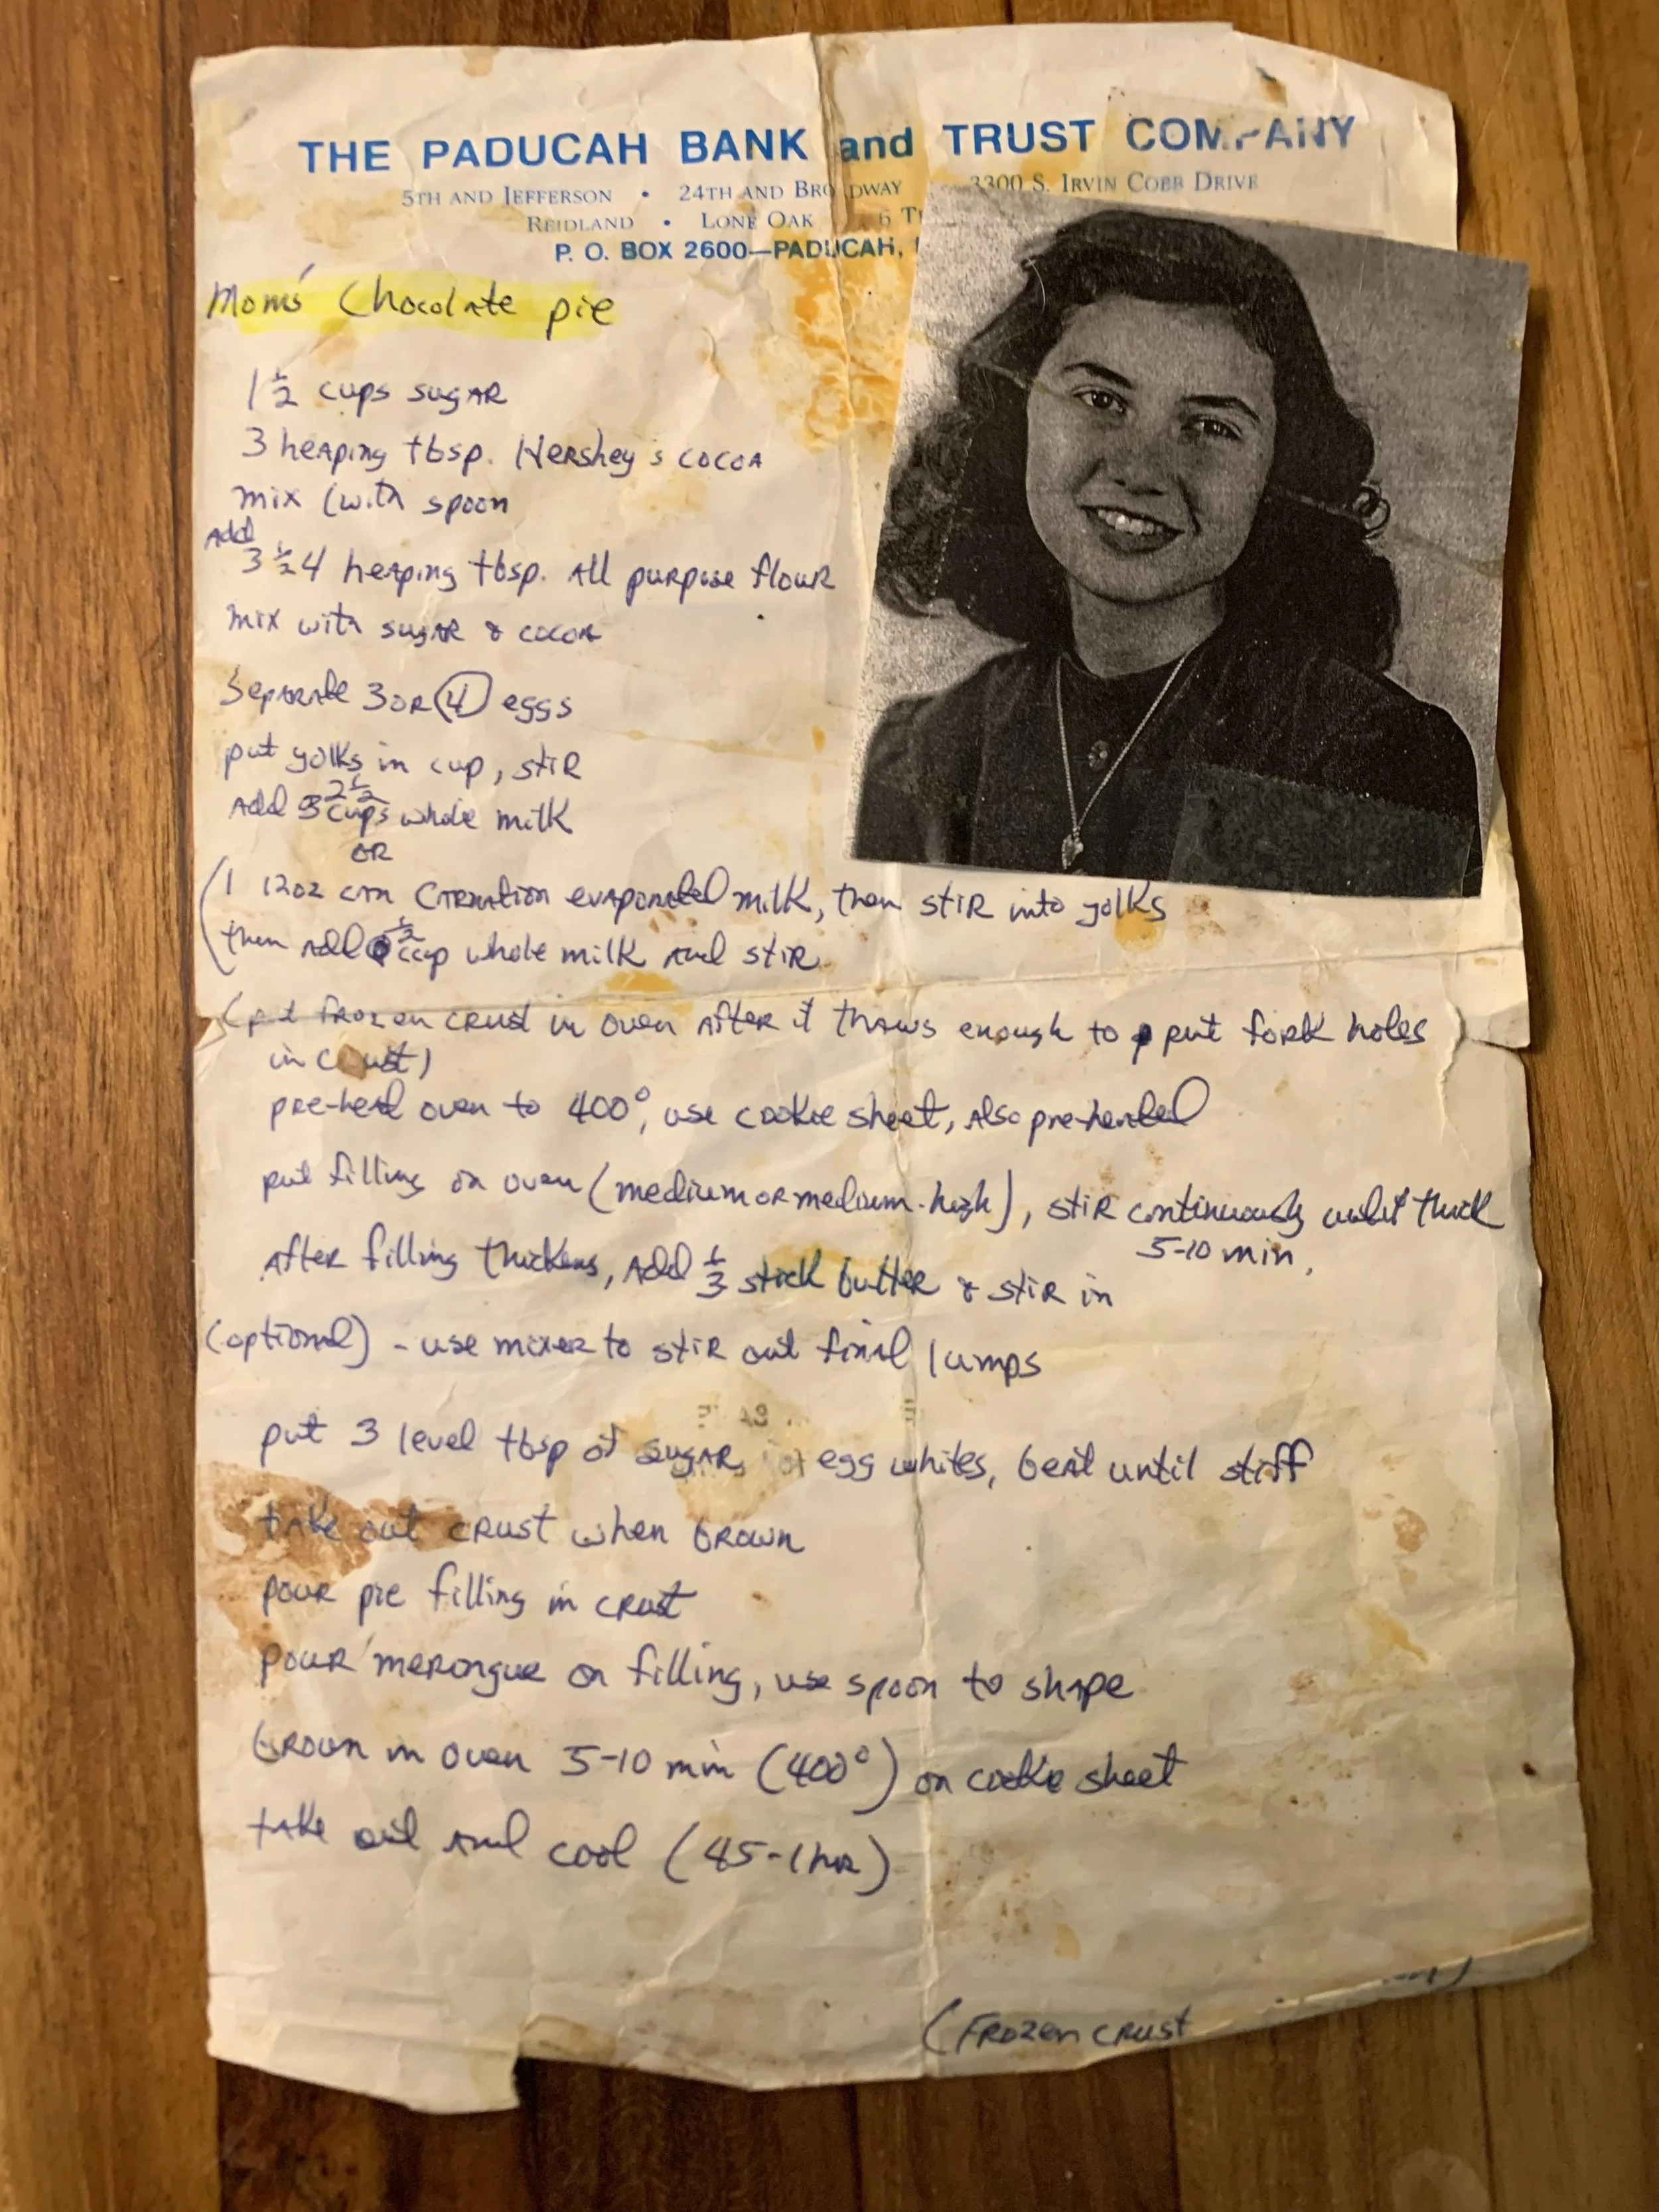 THE PADUCAH BANK and TRUST COMPANY
5TH AND JEFFERSON • 24TH AND BROADWAY 3300 S. IRVIN COBB DRIVE
REIDLAND • LONE OAK 6
P. O. BOX 2600—PADUCAH,
Mom's Chocolate pie
1 1/2 cups sugar
3 heaping tbsp. Hershey's cocoa
mix (with spoon
Add
3 1/2 4 heaping tbsp. All purpose flour
mix with sugar & cocoa
Separate 3 or 4 eggs
put yolks in cup, stir
2 1/2
Add 3 cups whole milk
OR
(1 12oz can Carnation evaporated milk, then stir into yolks
then add 1/2 cup whole milk and stir
(put frozen crust in oven after it thaws enough to put fork holes
in crust)
pre-heat oven to 400°, use cookie sheet, also pre-heated
put filling on oven (medium or medium-high), stir continuously until thick
5-10 min.
After filling thickens, Add 1/3 stick butter & stir in
(optional) - use mixer to stir out final lumps
put 3 level tbsp of sugar egg whites, beat until stiff
take out crust when brown
pour pie filling in crust
pour merongue on filling, use spoon to shape
brown in oven 5-10 min (400°) on cookie sheet
take out and cool (45-1 hr)
(Frozen crust